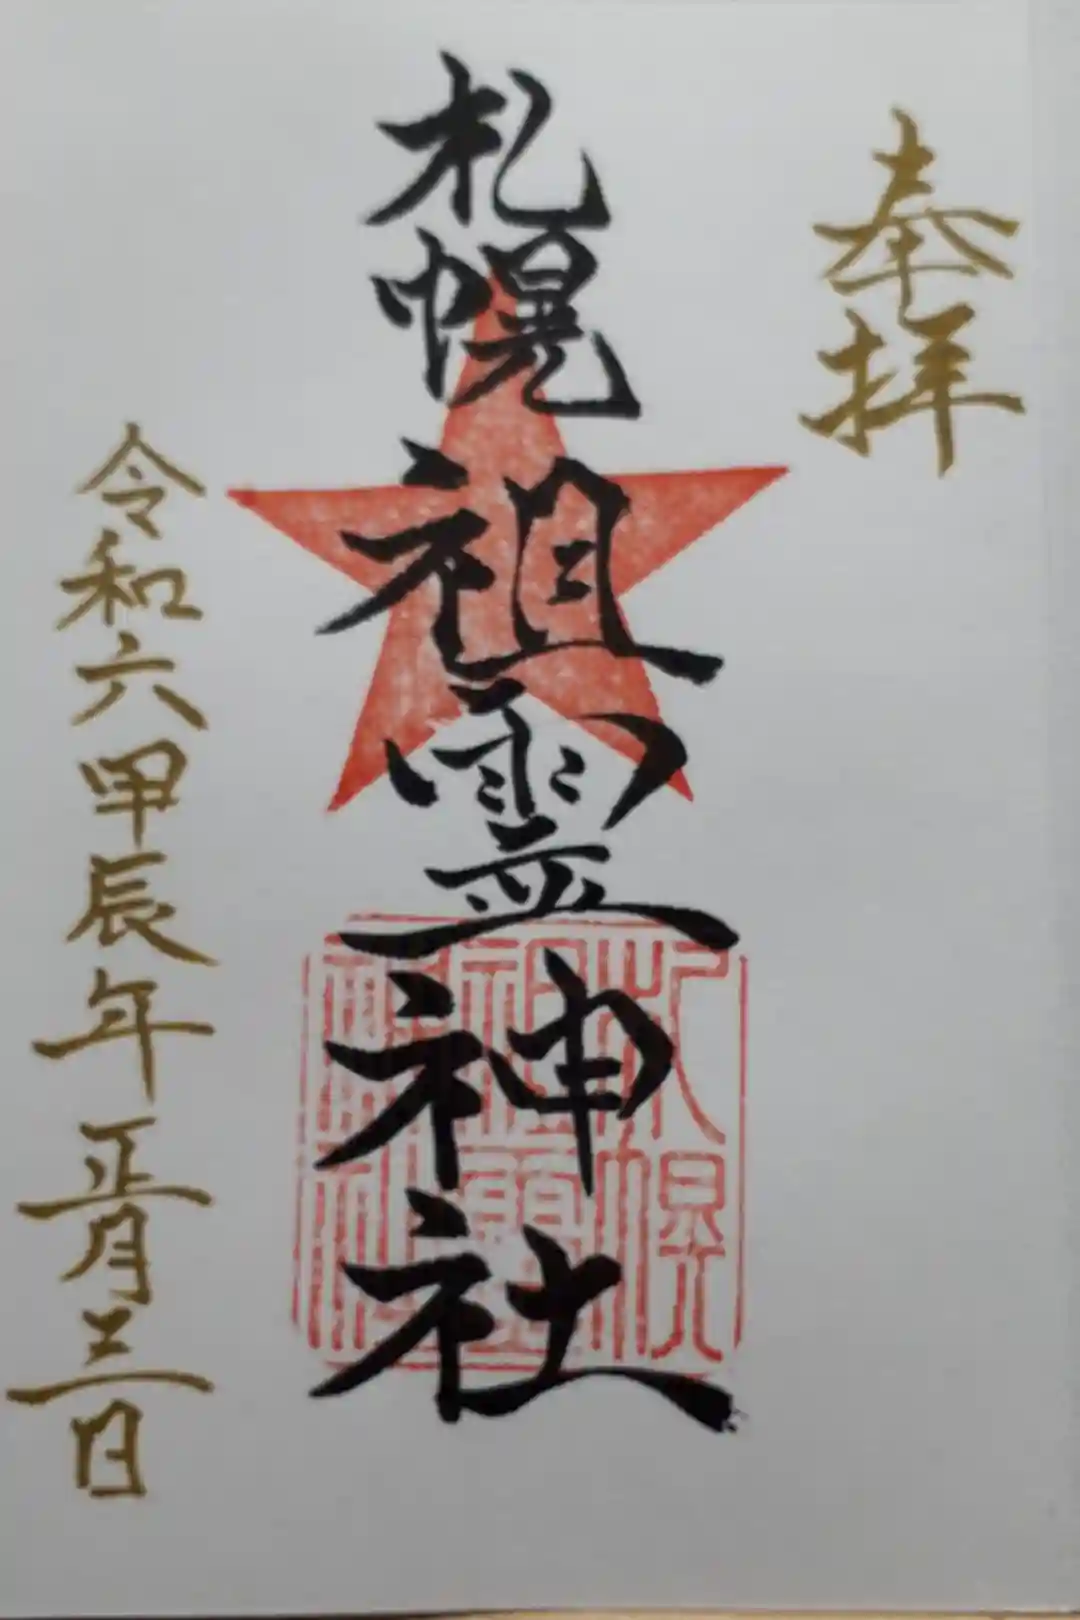 奉拝
札幌祖霊神社
札幌
祖霊
神社
令和六甲辰年正月三日